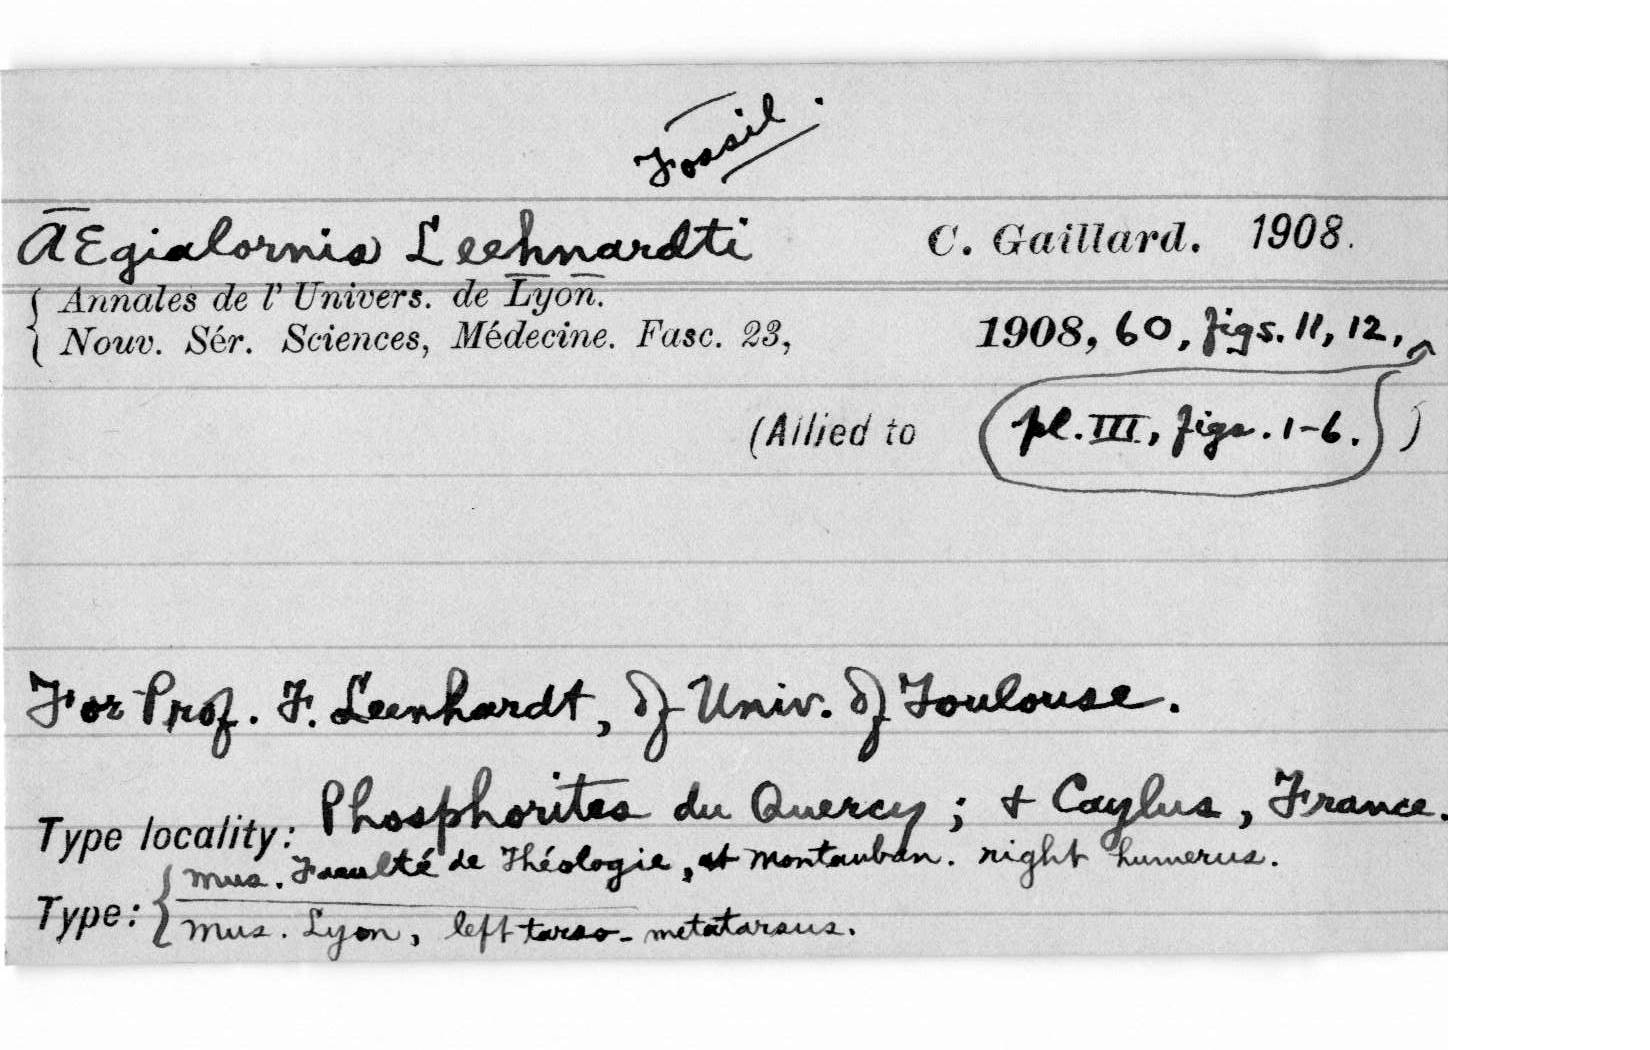 Fossil.
AEgialornis Leehnardti C. Gaillard. 1908.
Annales de l' Univers. de Lyon.
Nouv. Sér. Sciences, Médecine. Fasc. 23, 1908, 60, figs. 11, 12,
(Allied to pl. III, figs. 1-6. )
For Prof. F. Leenhardt, of Univ. of Toulouse.
Type locality: Phosphorites du Quercy; + Caylus, France.
Mus. Faculté de Théologie, at Montauban. right humerus.
Type: Mus. Lyon, left tarso-metatarsus.